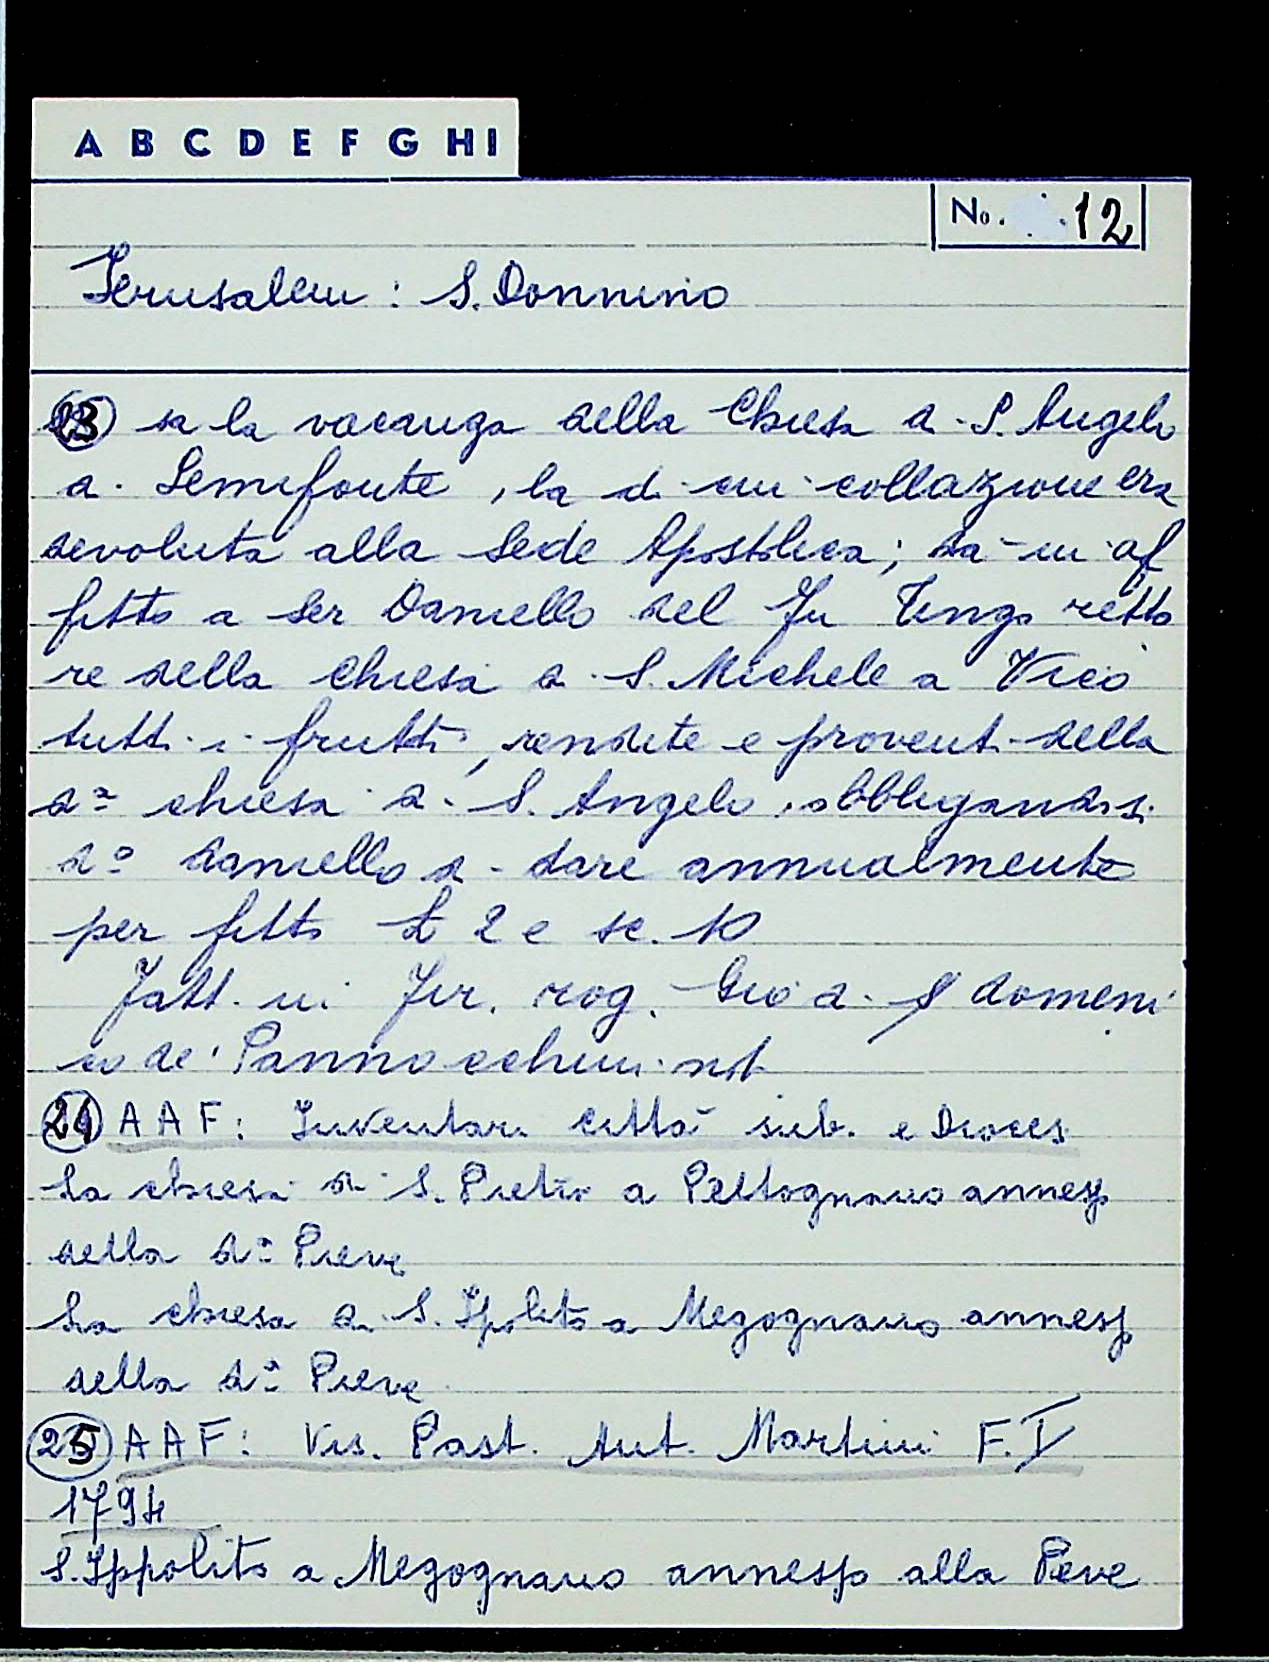 A B C D E F G H I
No. 12
Jerusalem : S. Donnino
23 x la vacanza della Chiesa di S. Angelo
a Semifonte, la di cui collazione era
devoluta alla Sede Apostolica; da in af
fitto a Ser Daniello del fu Tingo retto
re della chiesa di S. Michele a Vico
tutti i frutti, rendite e proventi della
da chiesa di S. Angelo, obbligandosi
do Daniello di dare annualmente
per fitto £ 2 e sc. 10
Fatt. in Fir. rog. Gio di S domeni
co de' Pannocchini not
24 A A F: Inventari città sub. e Dioces
La chiesa di S. Pietro a Pettognano annesso
della da Pieve
La chiesa di S. Ipolito a Mezzognano annesso
della da Pieve
25 A A F: Vis. Past. Ant. Martini F. I
1794
S. Ippolito a Mezognano annesso alla Pieve